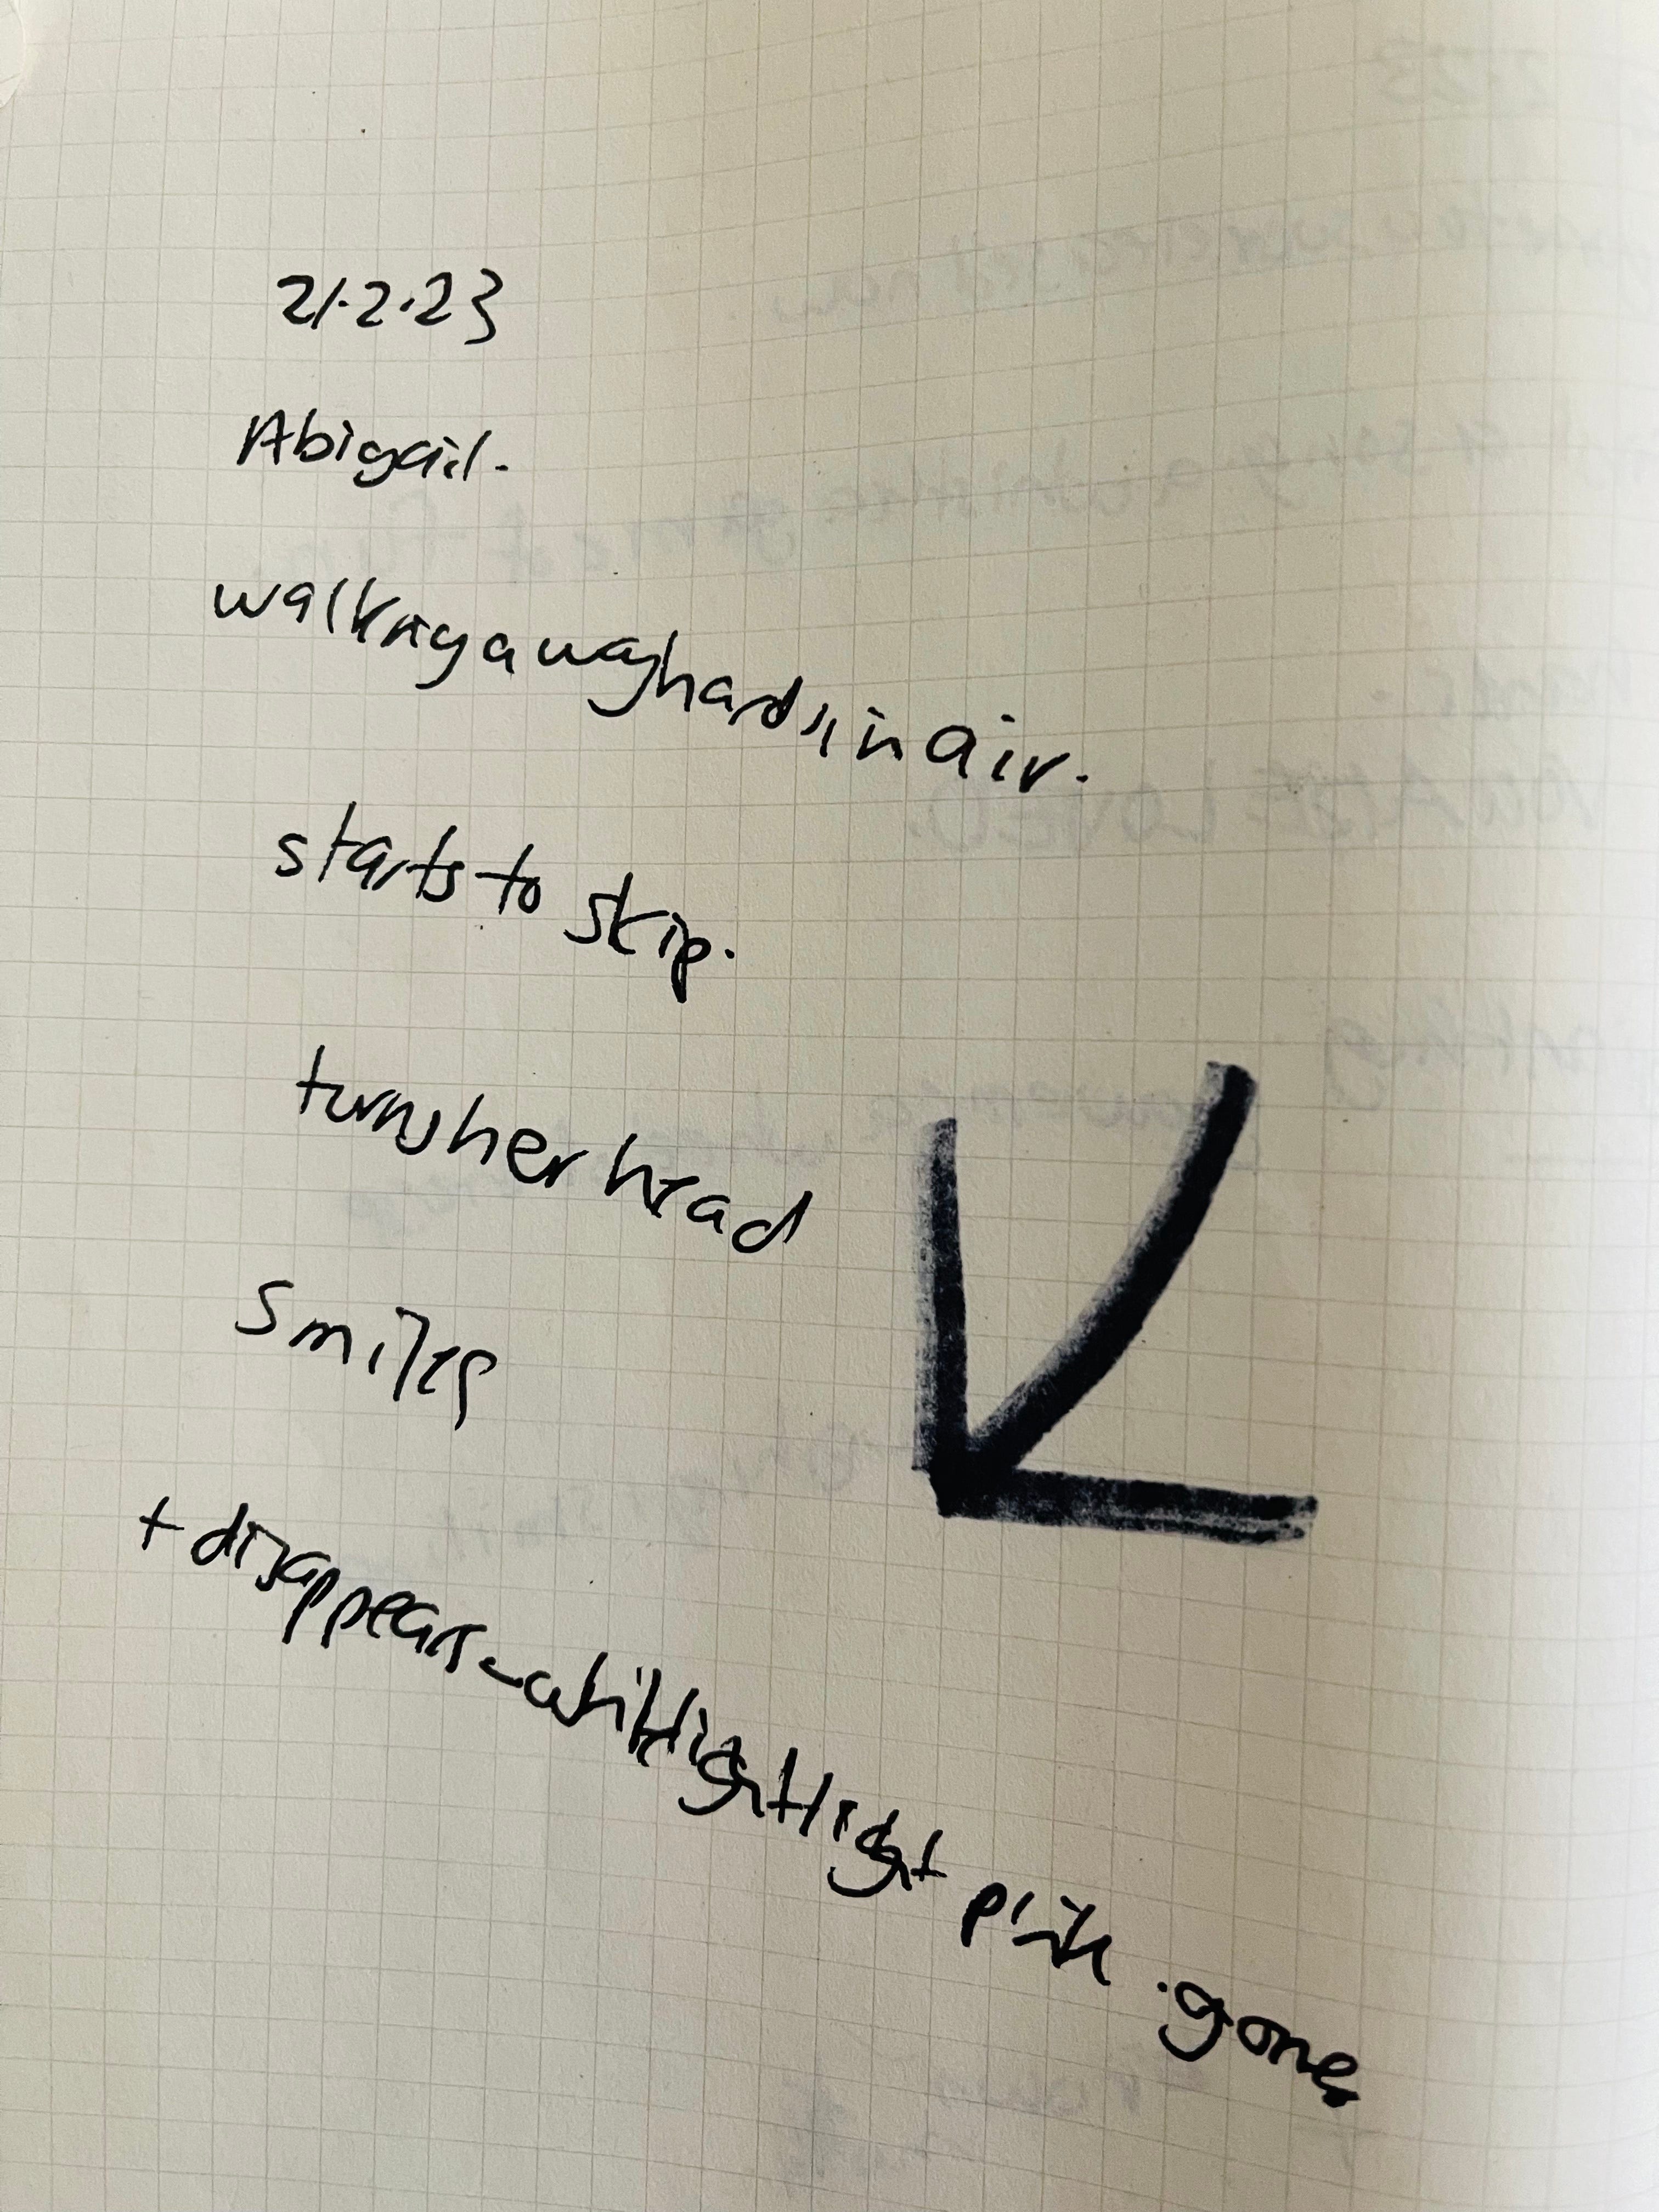 21.2.23
Abigail.
walking away hands in air.
starts to skip.
turns her head
smiles
+ disappears - light pink . gone